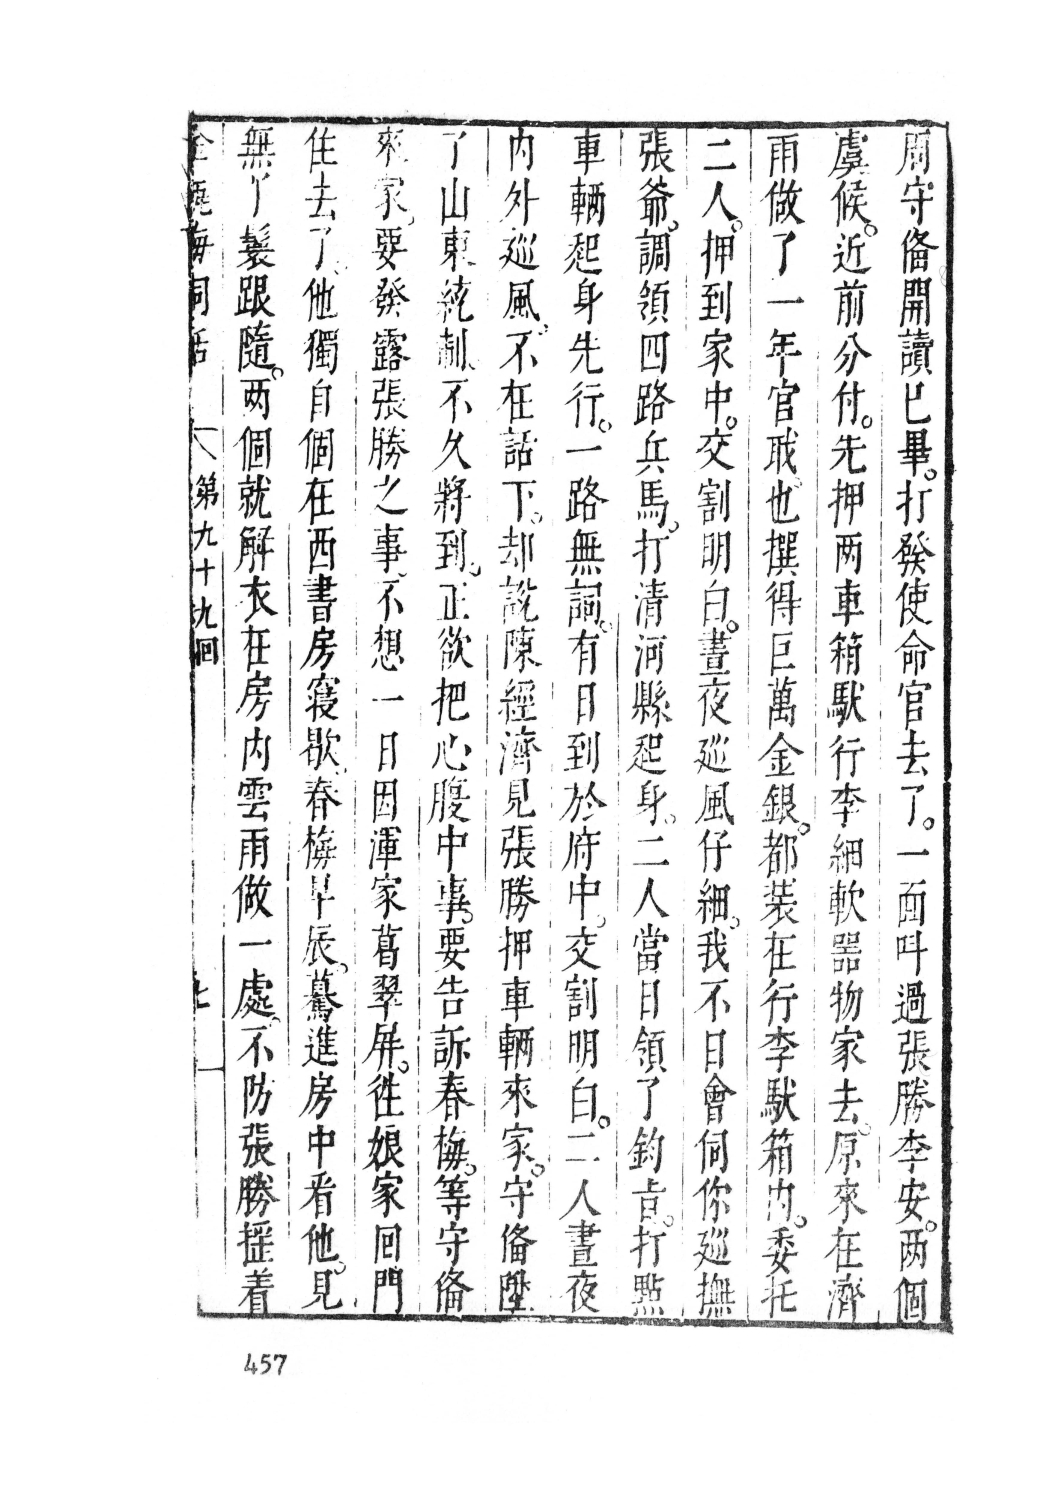 周守俻開讀已畢。打發使命官去了。一面呌過張勝李安。两個
虞候。近前分付。先押两車箱馱行李細軟噐物家去。原來在濟
南做了一年官职。也撰得巨萬金銀。都装在行李馱箱内。委托
二人。押到家中。交割明白。晝夜廵風仔細。我不日會同你廵撫
張爺。調領四路兵馬。打清河縣起身。二人當日領了鈞㫖。打點
車輛起身先行。一路無詞。有日到於府中。交割明白。二人晝夜
内外廵風。不在話下。却說陳經濟見張勝押車輛來家。守俻陞
了山東統制。不久將到。正欲把心腹中事。要告訴春梅。等守俻
來家。要發露張勝之事。不想一日因渾家葛翠屏。徃娘家回門
住去了。他獨自個在西書房寑歇。春梅早辰。驀進房中看他。見
無丫鬟跟隨。两個就解衣在房内雲雨做一處。不防張勝摇着
金瓶梅詞話 第九十九回 七
457